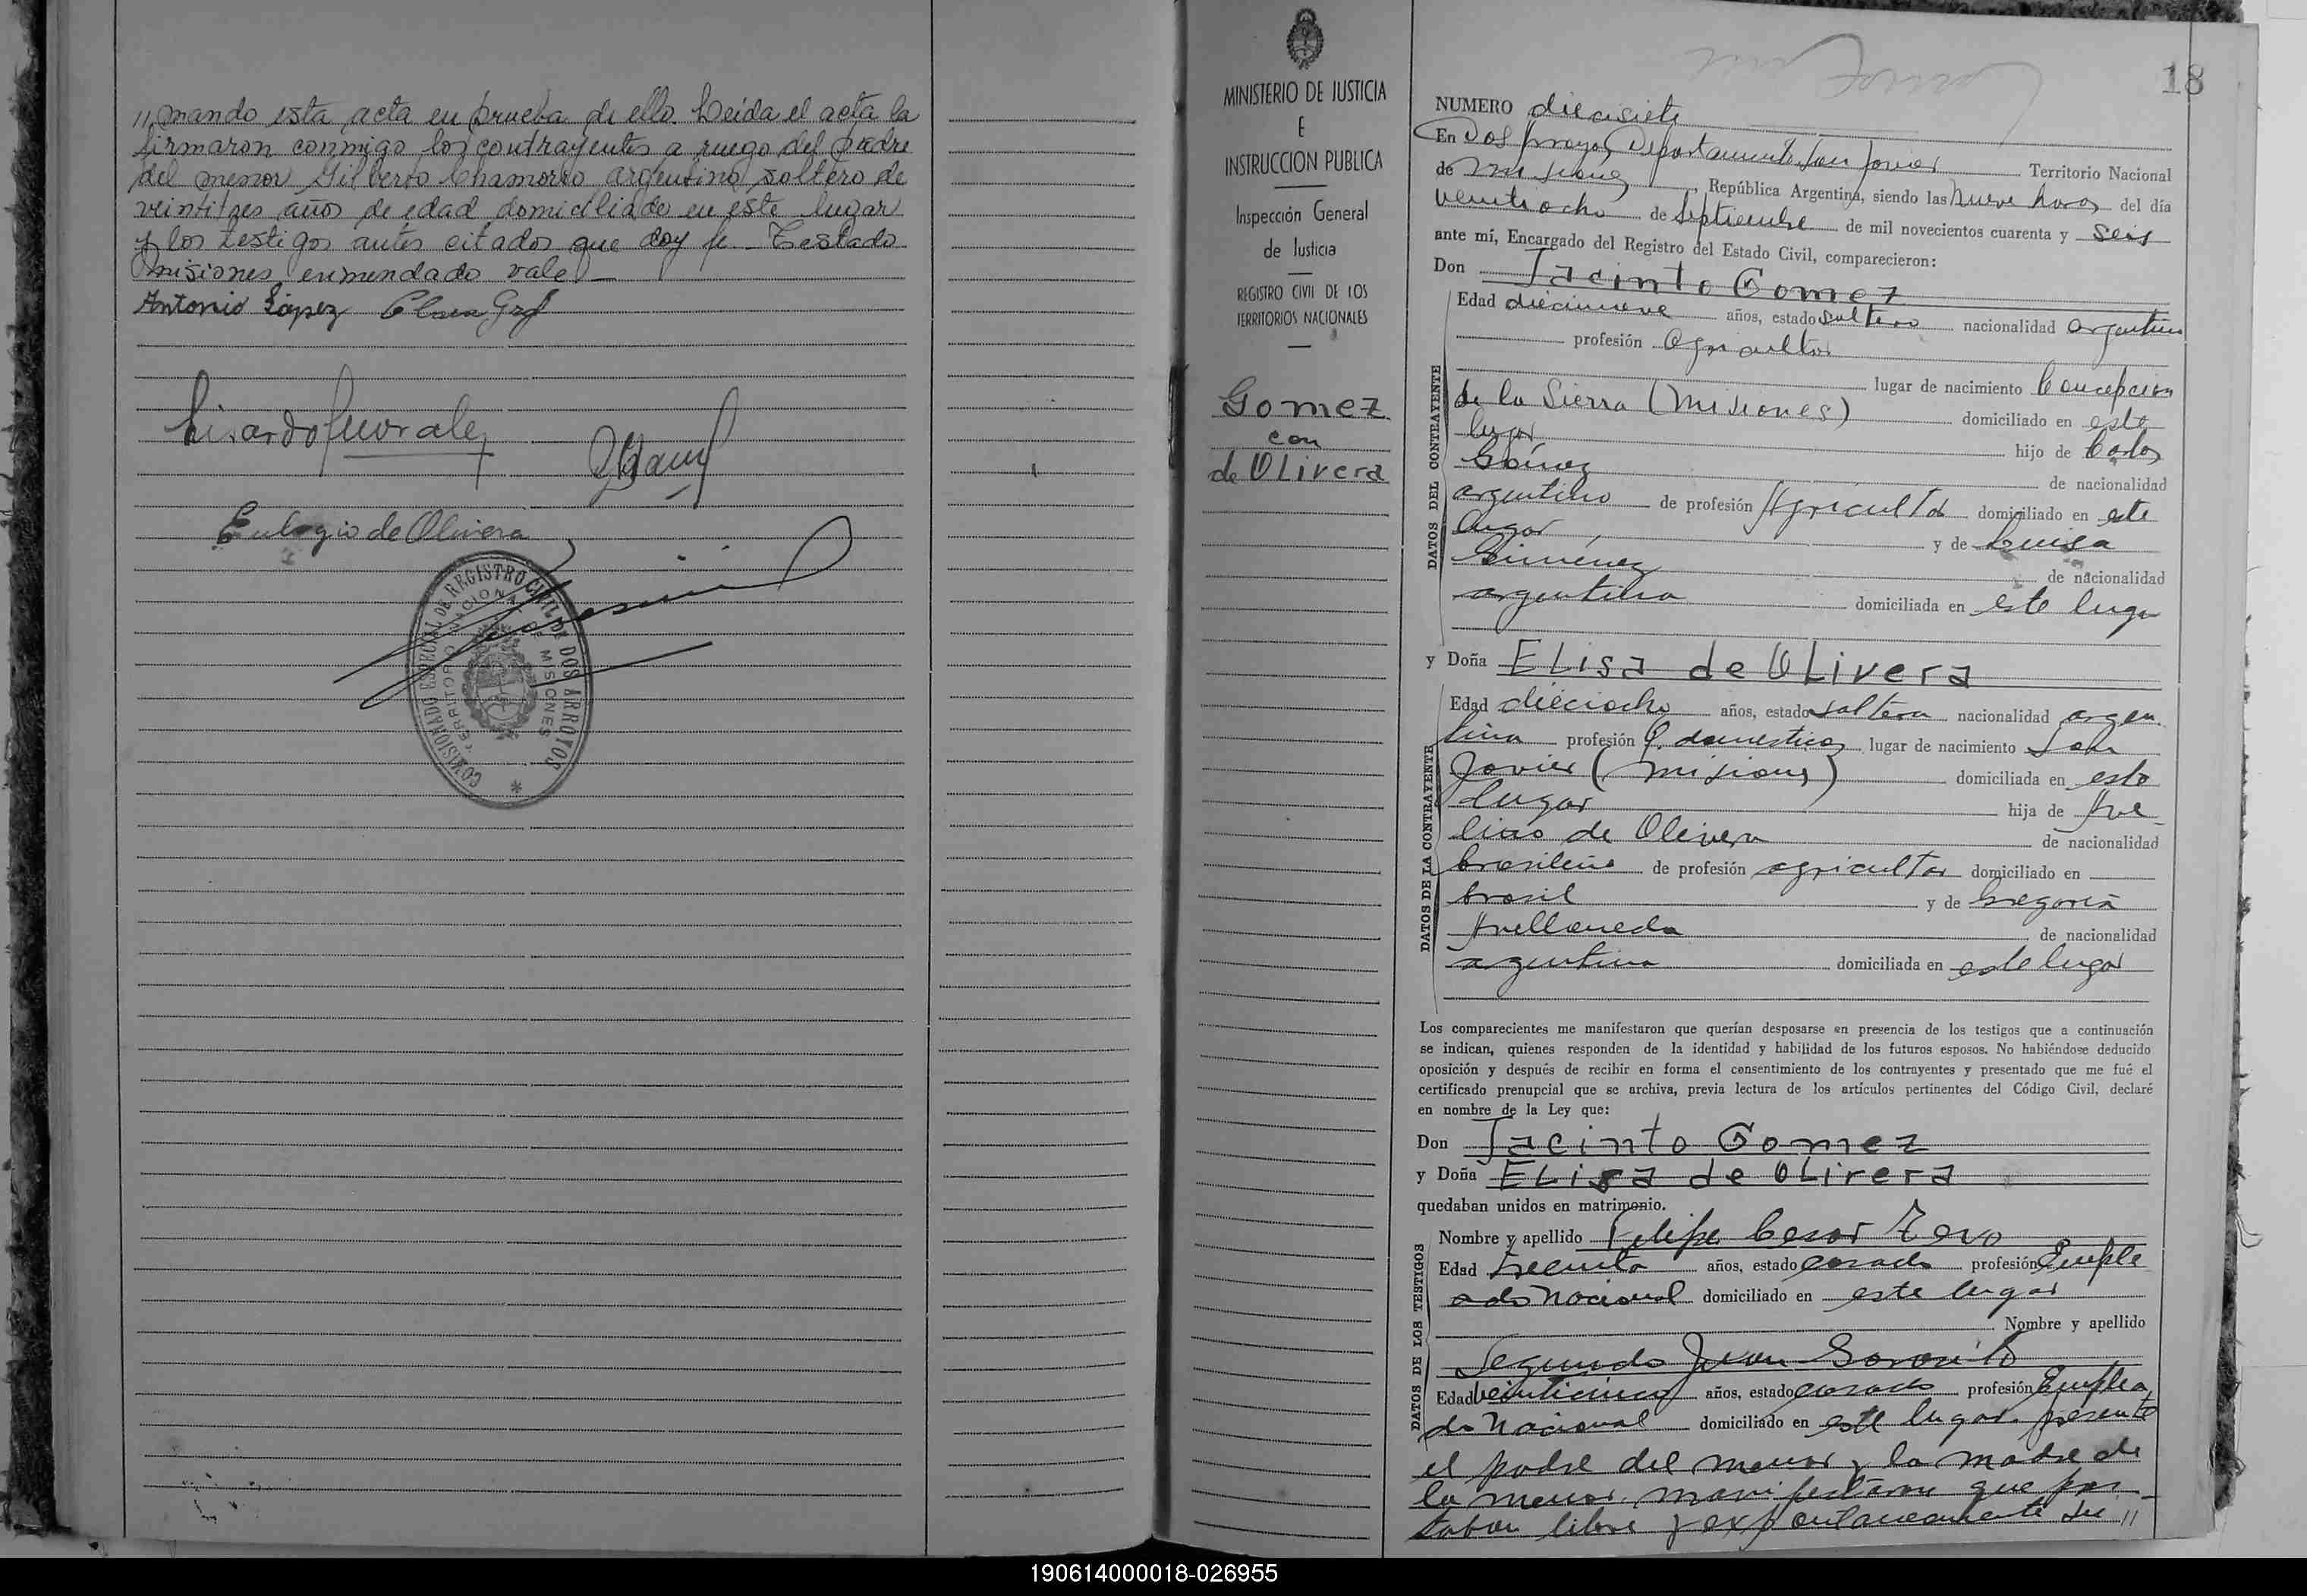 //mando esta acta en prueba de ello. Leída el acta la
firmaron conmigo los contrayentes a ruego del padre
del menor Gilberto Chamorro argentino soltero de
veintitres años de edad domiciliado en este lugar
y los testigos antes citados que doy fe. Testado
misiones enmendado vale
Antonio López
Eulogio de Olivera
COMISIONADO ESPECIAL DE REGISTRO CIVIL DE DOS ARROYOS
TERRITORIO NACIONAL DE MISIONES
MINISTERIO DE JUSTICIA
E
INSTRUCCION PUBLICA
Inspección General
de Justicia
REGISTRO CIVIL DE LOS
TERRITORIOS NACIONALES
Gomez
con
de Olivera
18
NUMERO diecisiete
En Dos Arroyos Departamento San Javier Territorio Nacional
de Misiones, República Argentina, siendo las nueve horas del día
veintiocho de Septiembre de mil novecientos cuarenta y seis
ante mí, Encargado del Registro del Estado Civil, comparecieron:
Don Jacinto Gomez
DATOS DEL CONTRAYENTE
Edad diecinueve años, estado soltero nacionalidad argentino
profesión agricultor
lugar de nacimiento Concepcion
de la Sierra (Misiones) domiciliado en este
lugar hijo de Carlos
Gómez de nacionalidad
argentino de profesión Agricultor domiciliado en este
lugar y de Luisa
Giménez de nacionalidad
argentina domiciliada en este lugar
y Doña Elisa de Olivera
DATOS DE LA CONTRAYENTE
Edad dieciocho años, estado soltera nacionalidad argen
tina profesión Q. domesticos lugar de nacimiento San
Javier (Misiones) domiciliada en este
lugar hija de Ave
lino de Olivera de nacionalidad
brasileño de profesión agricultor domiciliado en
brasil y de Gregoria
Avellaneda de nacionalidad
argentina domiciliada en este lugar
Los comparecientes me manifestaron que querían desposarse en presencia de los testigos que a continuación
se indican, quienes responden de la identidad y habilidad de los futuros esposos. No habiéndose deducido
oposición y después de recibir en forma el consentimiento de los contrayentes y presentado que me fué el
certificado prenupcial que se archiva, previa lectura de los artículos pertinentes del Código Civil, declaré
en nombre de la Ley que:
Don Jacinto Gomez
y Doña Elisa de Olivera
quedaban unidos en matrimonio.
DATOS DE LOS TESTIGOS
Nombre y apellido Felipe Cesar
Edad treinta años, estado casado profesión Emple
ado Nacional domiciliado en este lugar
Nombre y apellido
Segundo Juan
Edad veinticinco años, estado casado profesión Emplea
do Nacional domiciliado en este lugar. presente
el padre del menor y la madre de
la menor manifestaron que pres
taban libre y expontaneamente su //
190614000018-026955